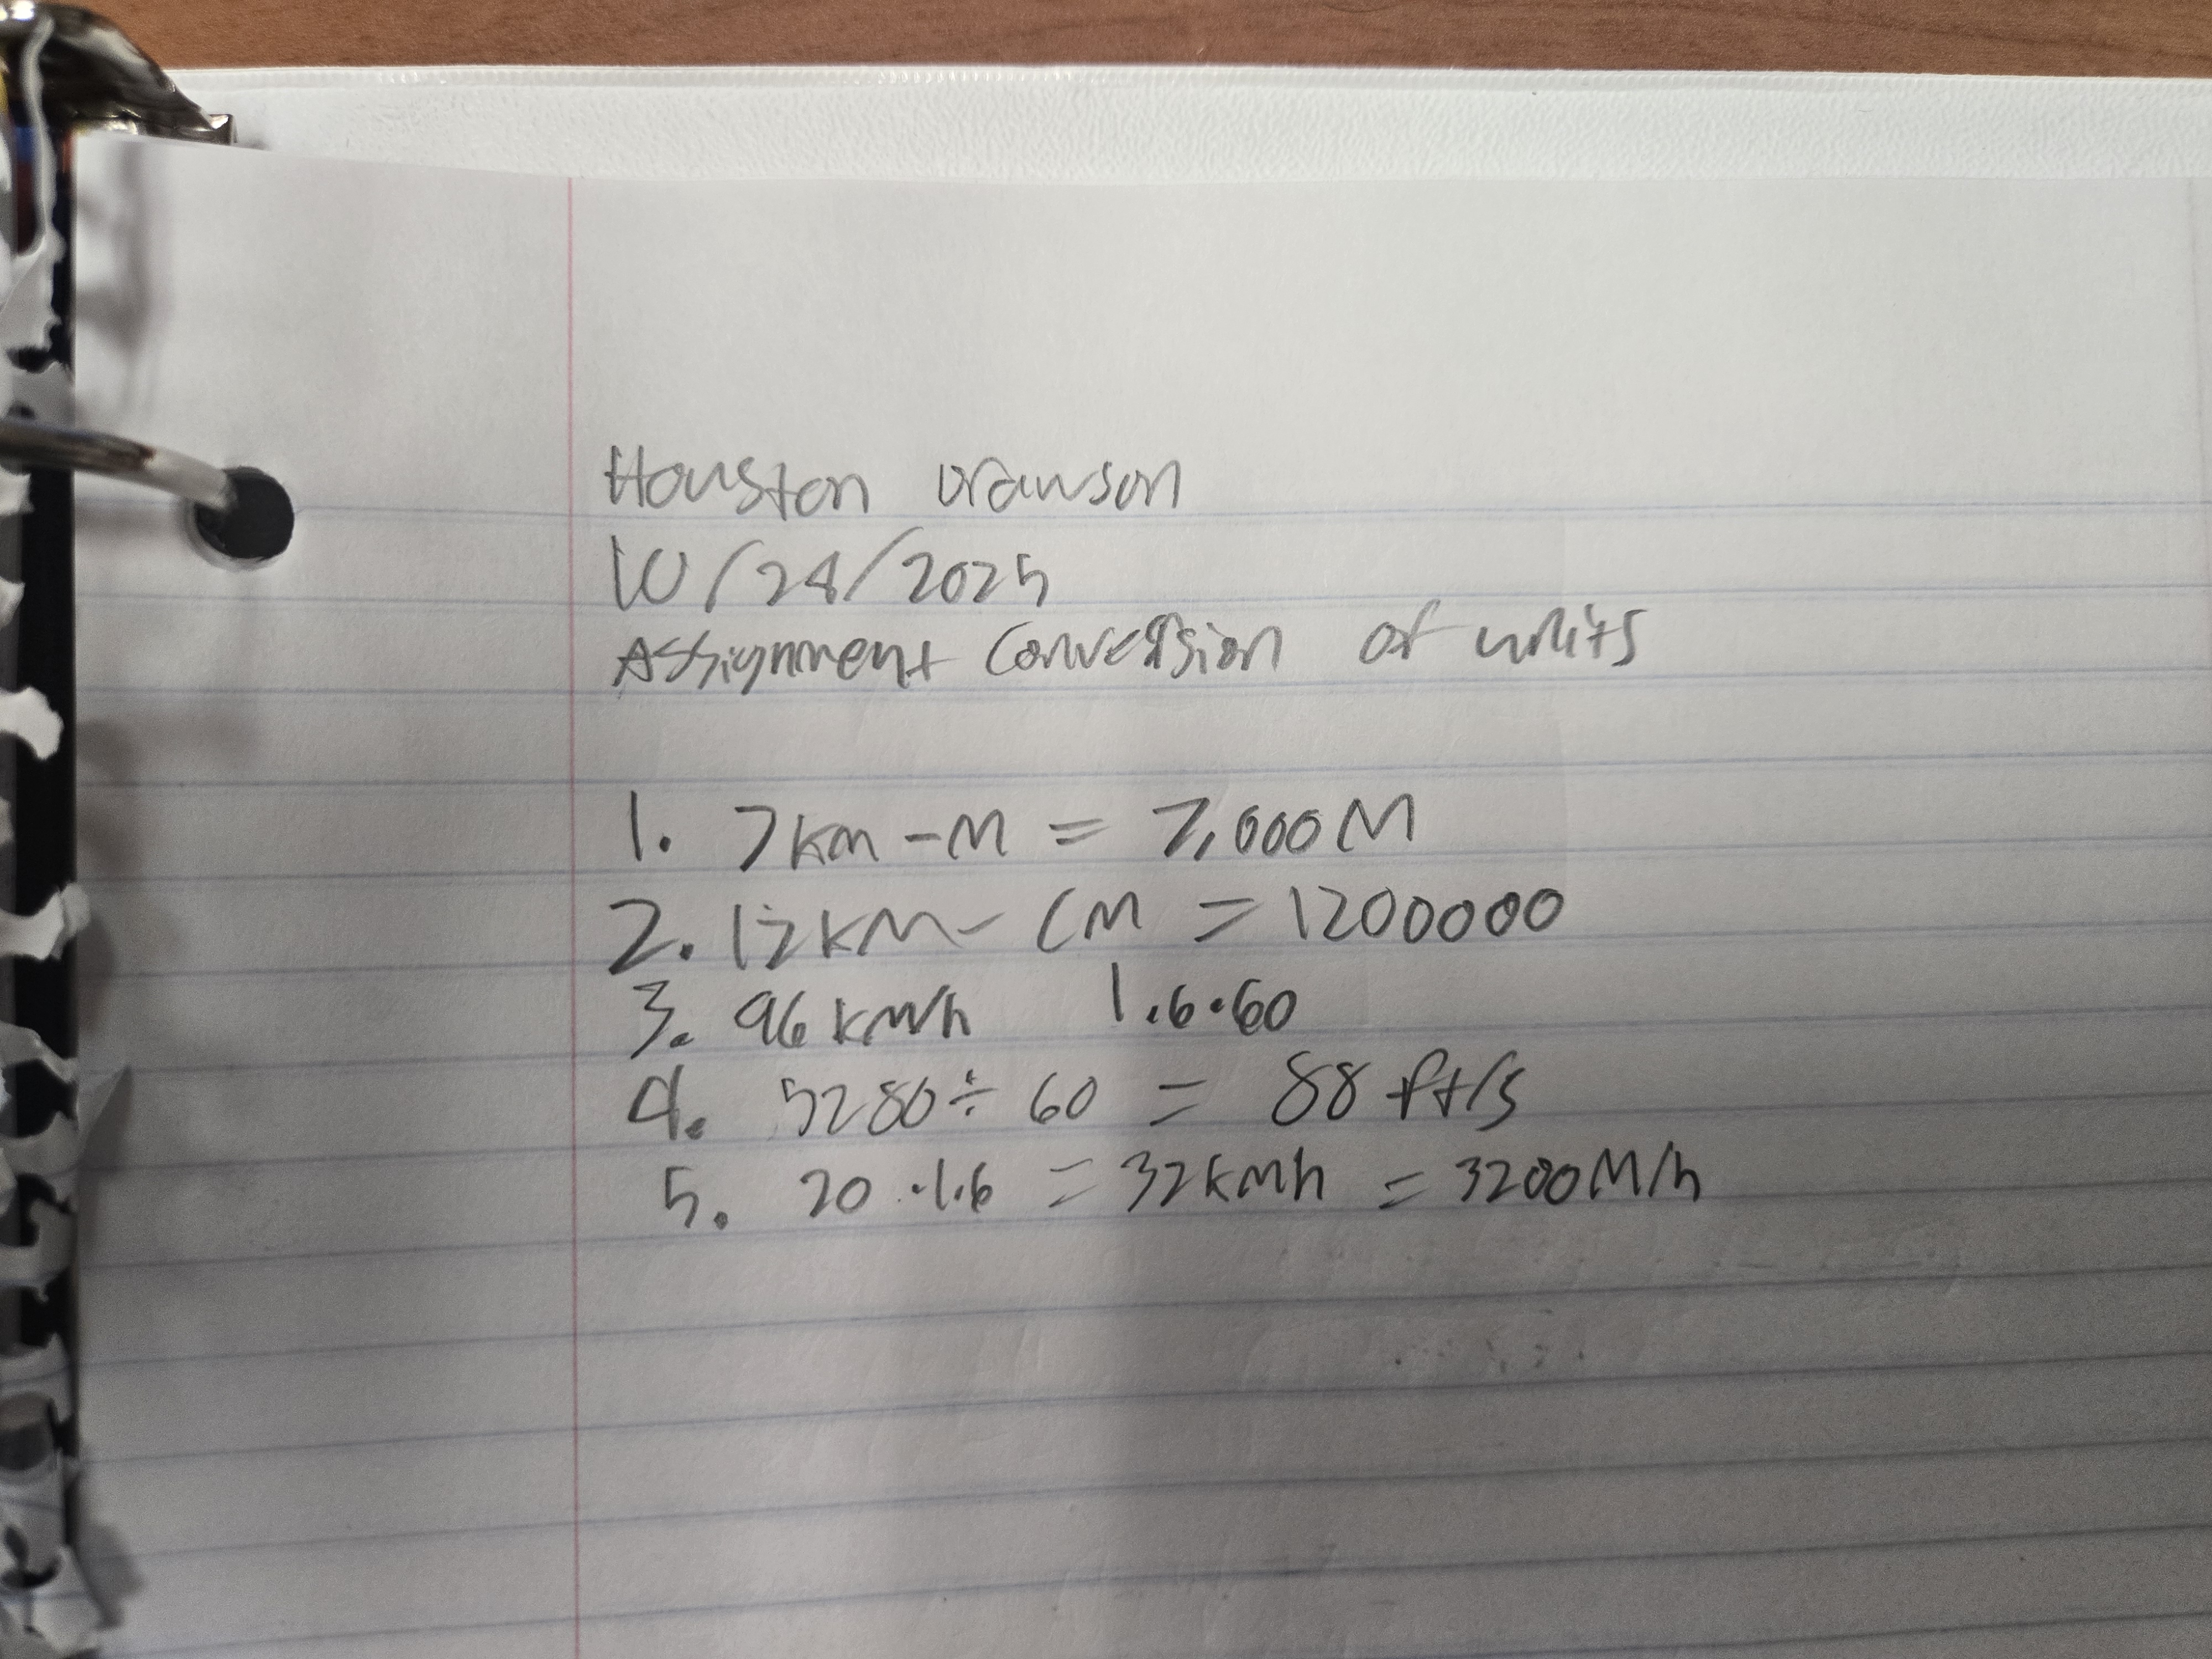 Houston
10/24/2024
Assignment Conversion of units
1. 7km-m = 7,000m
2. 12km-cm = 1200000
3. 96kmh 1.6·60
4. 5280÷60 = 88 ft/s
5. 20·1.6 = 32kmh = 3200m/h